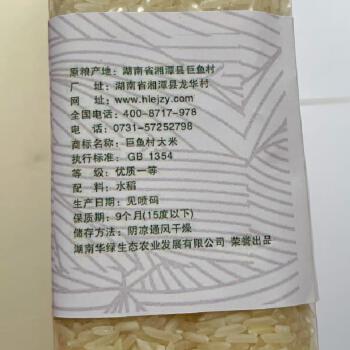 原粮产地：湖南省湘潭县巨鱼村
厂　址：湖南省湘潭县龙华村
网　址：www.hlejzy.com
全国电话：400-8717-978
电　话：0731-57252798
商标名称：巨鱼村大米
执行标准：GB 1354
等　级：优质一等
配　料：水稻
生产日期：见喷码
保质期：9个月(15度以下)
储存方法：阴凉通风干燥
湖南华绿生态农业发展有限公司 荣誉出品